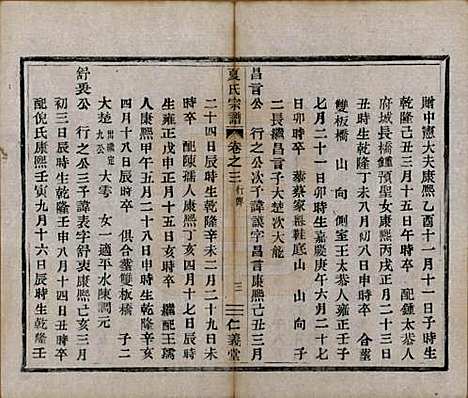 贈中憲大夫康熙乙酉十一月十一日子時生
乾隆三十二年三月十五日午時卒 配鍾太恭人
府城長橋鍾預聖女康熙丙戌正月二十三日
丑時生乾隆丁未八月初八日申時卒 合窆
雙板橋 山 向 側室王太恭人雍正戊申
七月二十一日卯時生嘉慶庚午六月二十七
日卯時卒 墓蔡家橋鞋底山 山 向子
二長繼昌言子大楚次大龍
昌言公 行 之公次子諱讓字昌言康熙己丑三月
夏氏宗譜 卷之三 行傳 三 仁義堂
二十四日辰時生乾隆辛未二月二十九日未
時卒 配陳孺人康熙丁亥四月十七日辰時
生雍正戊申正月十五日亥時卒 繼配王孺
人康熙甲午五月二十八日申時生乾隆辛亥
四月十八日辰時卒 俱合窆雙板橋 子二
大楚 出繼定九公 大雩 女一適平水陳調元
舒裘公 行 之公三子諱表字舒衷康熙己亥三月
初三日辰時生乾隆壬申八月十四日丑時卒
配倪氏康熙壬寅九月十六日辰時生乾隆壬